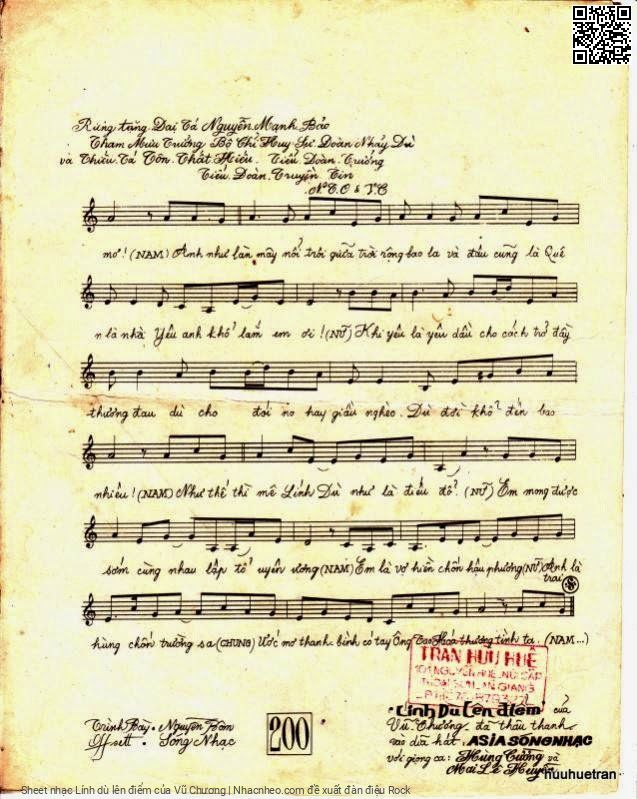 Riêng tặng Đại Tá Nguyễn Mạnh Bảo
Tham Mưu Trưởng Bộ Chỉ Huy Sư Đoàn Nhảy Dù
và Thiếu Tá Tôn Thất Hiếu. Tiểu Đoàn Trưởng
Tiểu Đoàn Truyền Tin
mơ! (NAM) Anh như làn mây nổi trôi giữa trời rộng bao la và đâu cũng là Quê
n là nhà Yêu anh khổ lắm em ơi! (NỮ) Khi yêu là yêu dầu cho cách trở đầy
thương đau dù cho đói no hay giầu nghèo. Dù đời khổ đến bao
nhiêu! (NAM) Như thế thì mê Lính Dù như là điếu đổ. (NỮ) Em mong được
sớm cùng nhau lập tổ uyên ương (NAM) Em là vợ hiền chốn hậu phương (NỮ) Anh là
trai
hùng chốn trường sa (CHUNG) Ước mơ thanh bình có tay Ông Tơ Hoá thương tình ta. (NAM...)
TRẦN HỮU HUỆ
Trình Bày • Nguyên
Offsett • Sóng Nhạc
200
"Lính Dù Lên điểm" của
Vũ Chương đã thâu thanh
vào dĩa hát ASIA SÓNG NHẠC
với giọng ca: Hùng Cường và
Mai Lệ Huyền
huuhuetran
Sheet nhạc Lính dù lên điểm của Vũ Chương | Nhacnheo.com đề xuất đàn điệu Rock